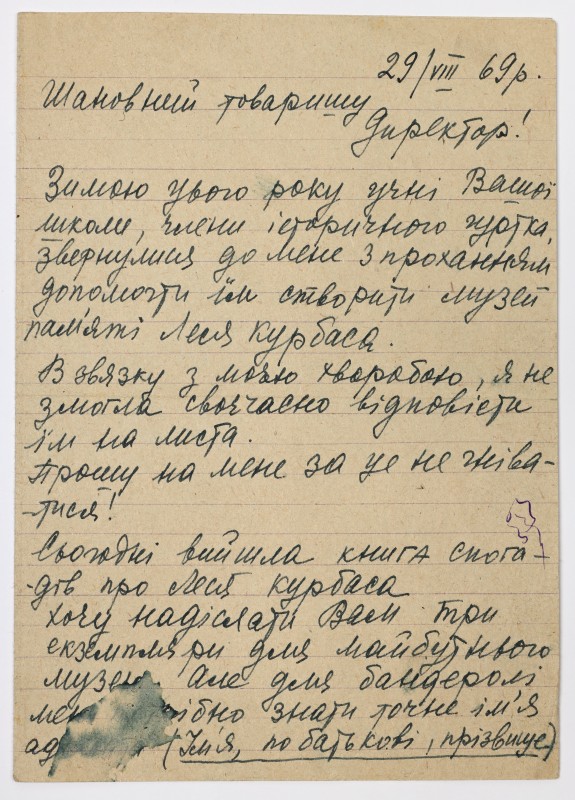 29/VIII 69р.
Шановний товаришу
Директор!
Зимою цього року учні Вашої
школи, члени історичного гуртка,
звернулися до мене з проханням
допомогти їм створити музей
пам'яті Леся Курбаса.
В звязку з моєю хворобою, я не
змогла своєчасно відповісти
їм на листа.
Прошу на мене за це не гніва-
-тися!
Сьогодні вийшла книга спога-
-дів про Леся Курбаса
хочу надіслати Вам три
екземпляри для майбутнього
музею. Але для бандеролі
знати точне ім'я
(Ім'я, по батькові, прізвище)